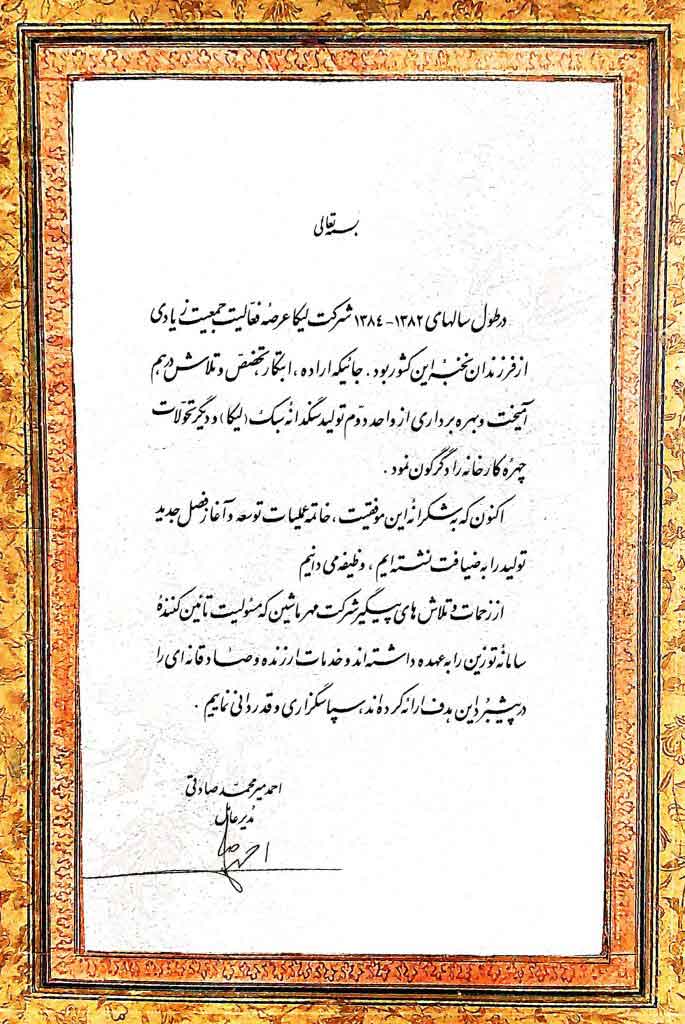 بسمه تعالی
در طول سالهای ۱۳۸۲-۱۳۸۴ شرکت لیکا عرصه فعالیت جمعیت زیادی
از فرزندان نخبه این کشور بود. جائیکه اراده، ابتکار، تخصص و تلاش در هم
آمیخت و بهره برداری از واحد دوّم تولید سنگدانۀ سبک (لیکا) و دیگر تحوّلات
چهرۀ کارخانه را دگرگون نمود.
اکنون که به شکرانۀ این موفقیت، خاتمه عملیات توسعه و آغاز فصل جدید
تولید را به ضیافت نشسته ایم، وظیفه می دانیم
از زحمات و تلاش های پیگیر شرکت مهر ماشین که مسئولیت تأمین کنندۀ
سامانۀ توزین را به عهده داشته اند و خدمات ارزنده و صادقانه ای را
در پیشبرد این هدف ارائه کرده اند، سپاسگزاری و قدردانی نماییم.
احمد میرمحمّد صادقی
مدیر عامل